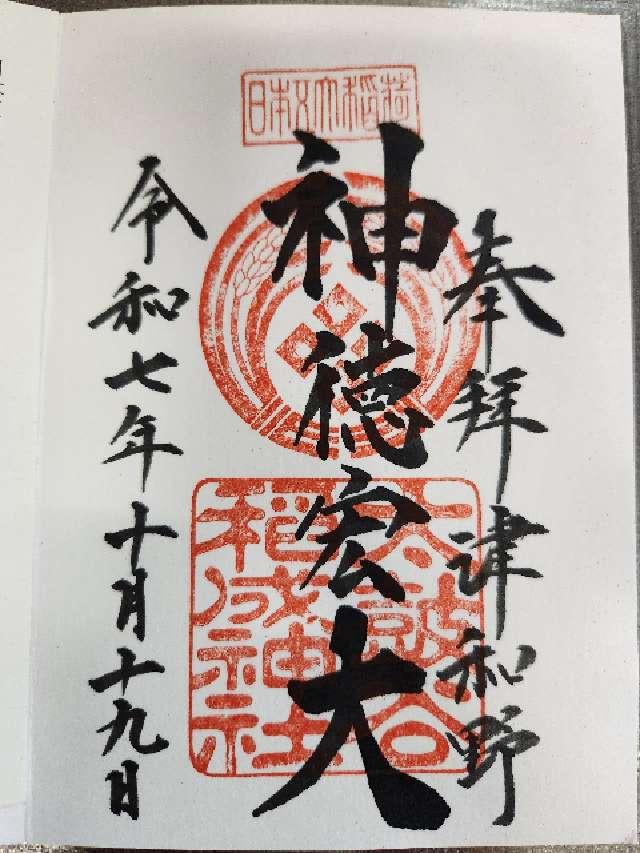 奉拝津和野
日本五大稲荷
神徳宏大
太皷谷稲成神社
令和七年十月十九日